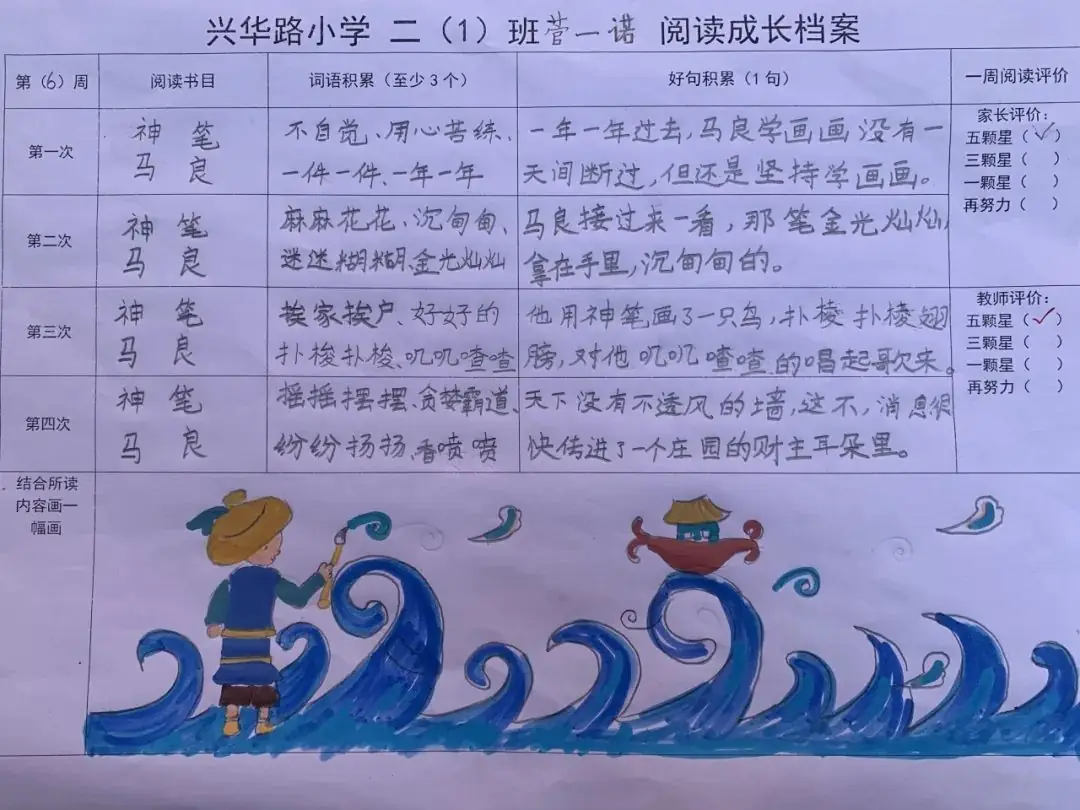 兴华路小学 二（1）班菅一诺 阅读成长档案
第（6）周 阅读书目 词语积累（至少3个） 好句积累（1句） 一周阅读评价
第一次
神笔
马良
不自觉、用心苦练、
一件一件、一年一年
一年一年过去，马良学画画没有一
天间断过，但还是坚持学画画。
家长评价：
五颗星（✓）
三颗星（ ）
一颗星（ ）
再努力（ ）
第二次
神笔
马良
麻麻花花、沉甸甸、
迷迷糊糊、金光灿灿
马良接过来一看，那笔金光灿灿，
拿在手里，沉甸甸的。
第三次
神笔
马良
挨家挨户、好好的
扑梭扑梭、叽叽喳喳
他用神笔画了一只鸟，扑棱扑棱翅
膀，对他叽叽喳喳的唱起歌来。
教师评价：
五颗星（✓）
三颗星（ ）
一颗星（ ）
再努力（ ）
第四次
神笔
马良
摇摇摆摆、贪婪霸道、
纷纷扬扬、香喷喷
天下没有不透风的墙，这不，消息很
快传进了一个庄园的财主耳朵里。
结合所读
内容画一
幅画